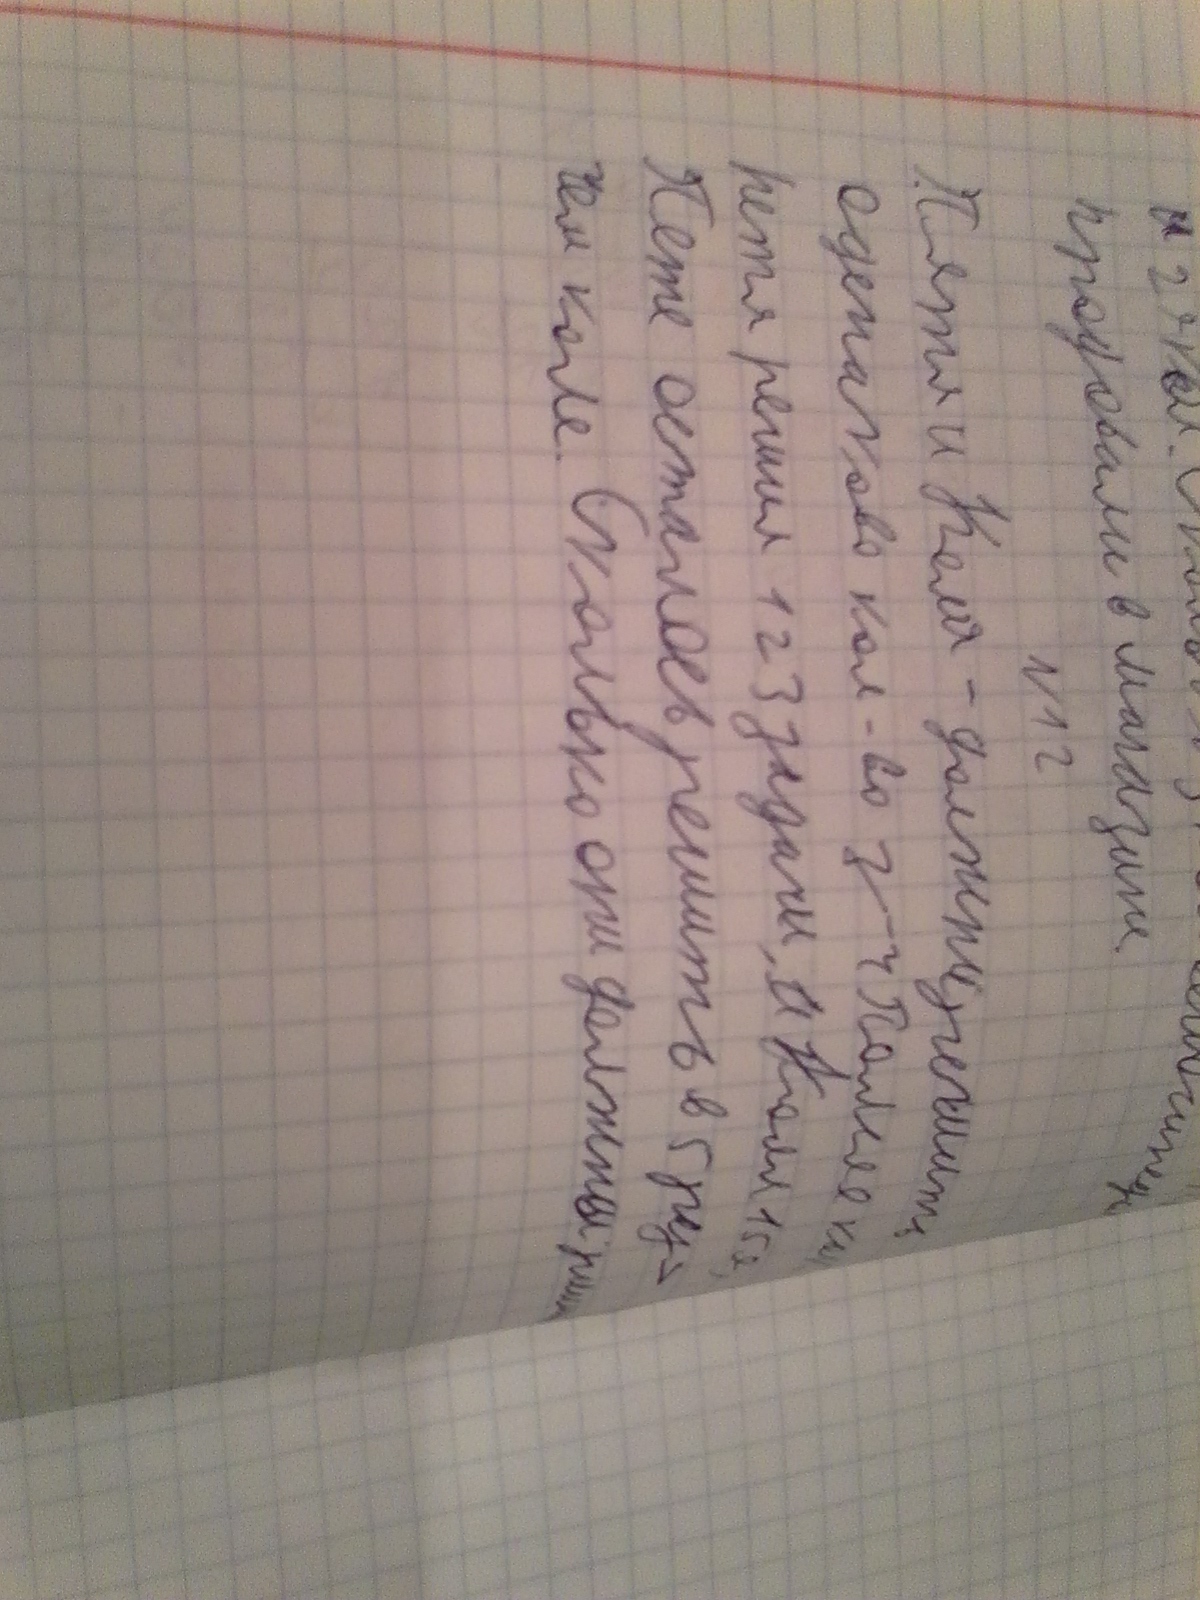 и
продовали в магазине.
N12
Пятя и Коля - должны решить
оденаково кол-во з-ч После
петя решил 123 задачи, и Коля 15
Пете осталось решить в 5 раз
чем коле. Сколько они должны